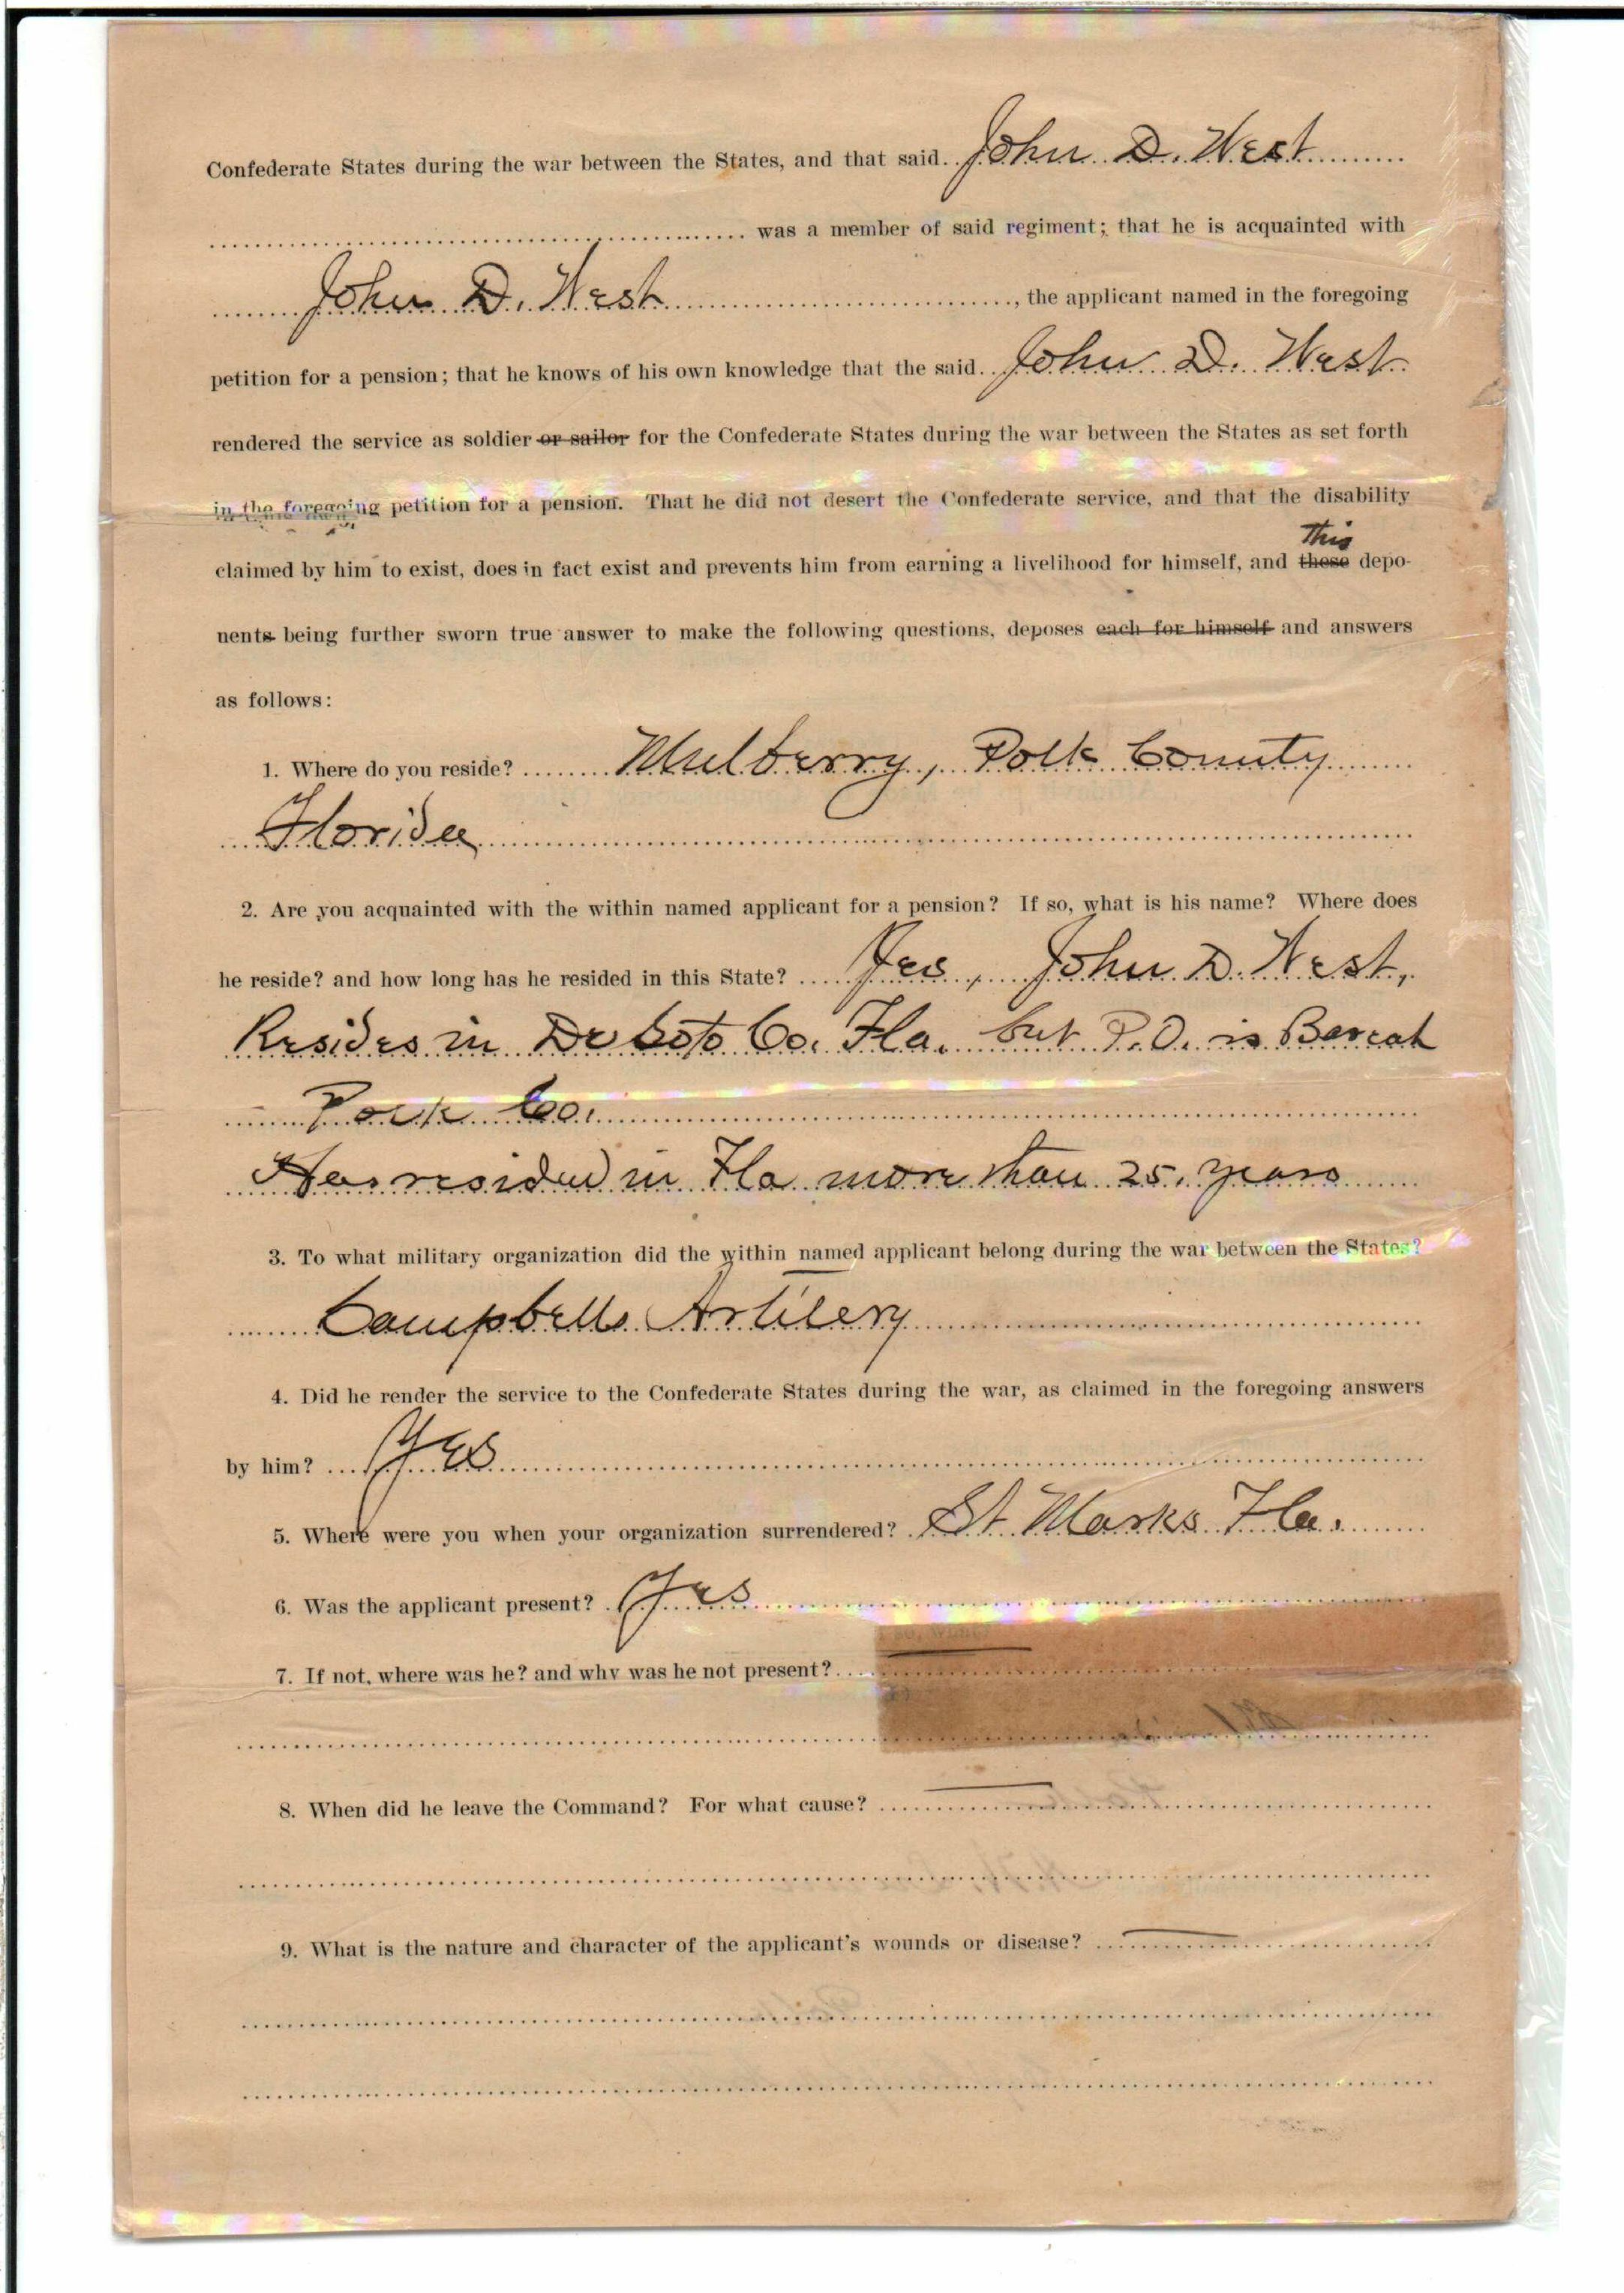 Confederate States during the war between the States, and that said John D. West
was a member of said regiment; that he is acquainted with
John D. West, the applicant named in the foregoing
petition for a pension; that he knows of his own knowledge that the said John D. West
rendered the service as soldier or sailor for the Confederate States during the war between the States as set forth
in the foregoing petition for a pension. That he did not desert the Confederate service, and that the disability
This
claimed by him to exist, does in fact exist and prevents him from earning a livelihood for himself, and these depo-
nents being further sworn true answer to make the following questions, deposes each for himself and answers
as follows:
1. Where do you reside? Mulberry, Polk County
Florida
2. Are you acquainted with the within named applicant for a pension? If so, what is his name? Where does
he reside? and how long has he resided in this State? Yes, John D. West,
Resides in DeSoto Co. Fla. but P.O. is Bereah
Polk Co.
Has resided in Fla more than 25 years
3. To what military organization did the within named applicant belong during the war between the States?
Campbells Artilery
4. Did he render the service to the Confederate States during the war, as claimed in the foregoing answers
by him? Yes
5. Where were you when your organization surrendered? St. Marks Fla.
6. Was the applicant present? Yes
7. If not, where was he? and why was he not present?
8. When did he leave the Command? For what cause?
9. What is the nature and character of the applicant's wounds or disease?